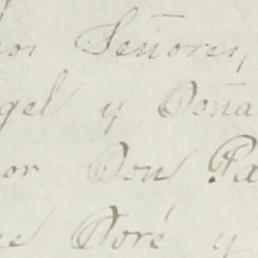 los Señores,
gel y Doña
or Don Pa
ue Doré y